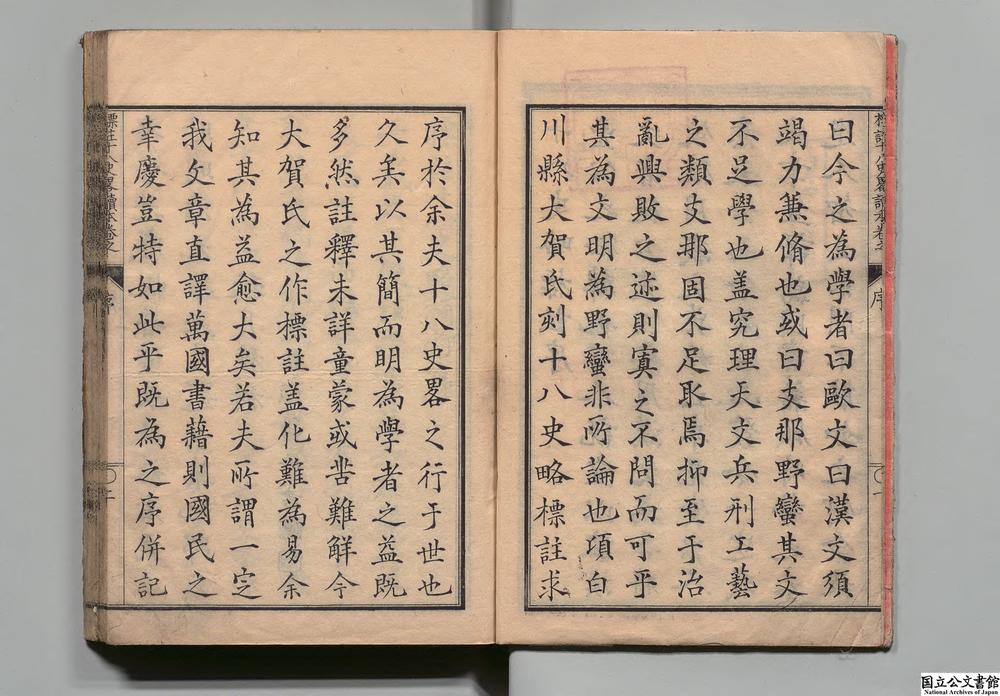 曰今之為學者曰歐文曰漢文須
竭力兼脩也或曰支那野蠻其文
不足學也盖究理天文兵刑工藝
之類支那固不足取焉抑至于治
亂興敗之迹則寘之不問而可乎
其為文明為野蠻非所論也項白
川縣大賀氏刻十八史略標註求
序於余夫十八史畧之行于世也
久矣以其簡而明為學者之益既
多然註釋未詳童蒙或苦難解今
大賀氏之作標註盖化難為易余
知其為益愈大矣若夫所謂一定
我文章直譯萬國書藉則國民之
幸慶豈特如此乎既為之序併記
序
序
国立公文書館
National Archives of Japan